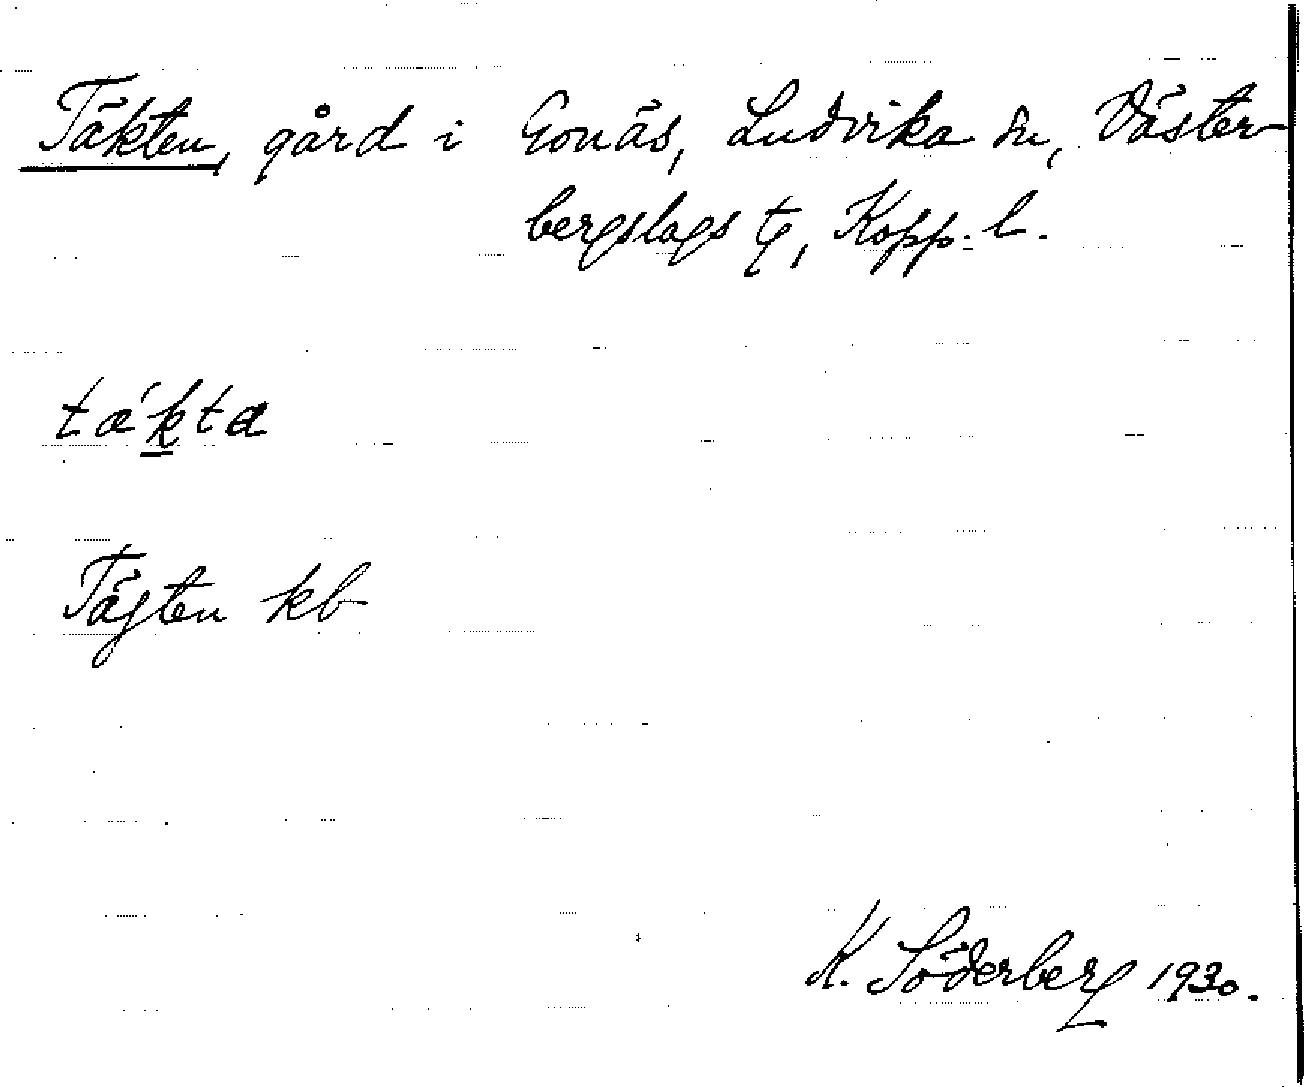 Täkten, gård i Gonäs, Ludvika sn, Väster-
bergslags tg, Kopp. l.
tǽkta
Tägten kb
K. Söderberg 1930.